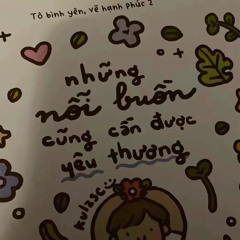 Tô bình yên, vẽ hạnh phúc 2
những
nỗi buồn
cũng cần được
yêu thương
kulzsc